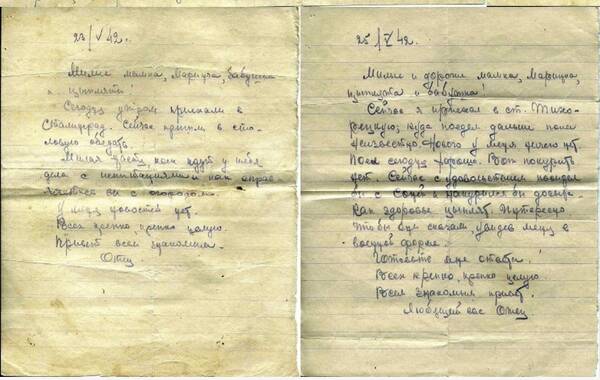 23/V 42.
Милые мамка, Маришка, бабушка
и цыплята!
Сегодня утром приехали в
Сталинград. Сейчас идём в сто-
ловую обедать.
Милая как идут у тебя
дела с и как справ-
ляетесь вы с огородом.
У меня новостей нет.
Всех крепко, крепко целую.
Привет всем знакомым.
Отец
25/V 42.
Милые и дорогие мамка, Маришка,
цыплята и бабушка!
Сейчас я приехал в ст. Тихо-
рецкую, куда поедем дальше пока
неизвестно. Нового у меня ничего нет.
Поел сегодня хорошо. Вот покурить
нет. Сейчас с удовольствием посидел
бы с и накурился бы
Как здоровье цыплят. Интересно
чтобы они сказали, увидев меня в
военной форме.
Всех крепко, крепко целую.
Всем знакомым привет.
Любящий вас Отец